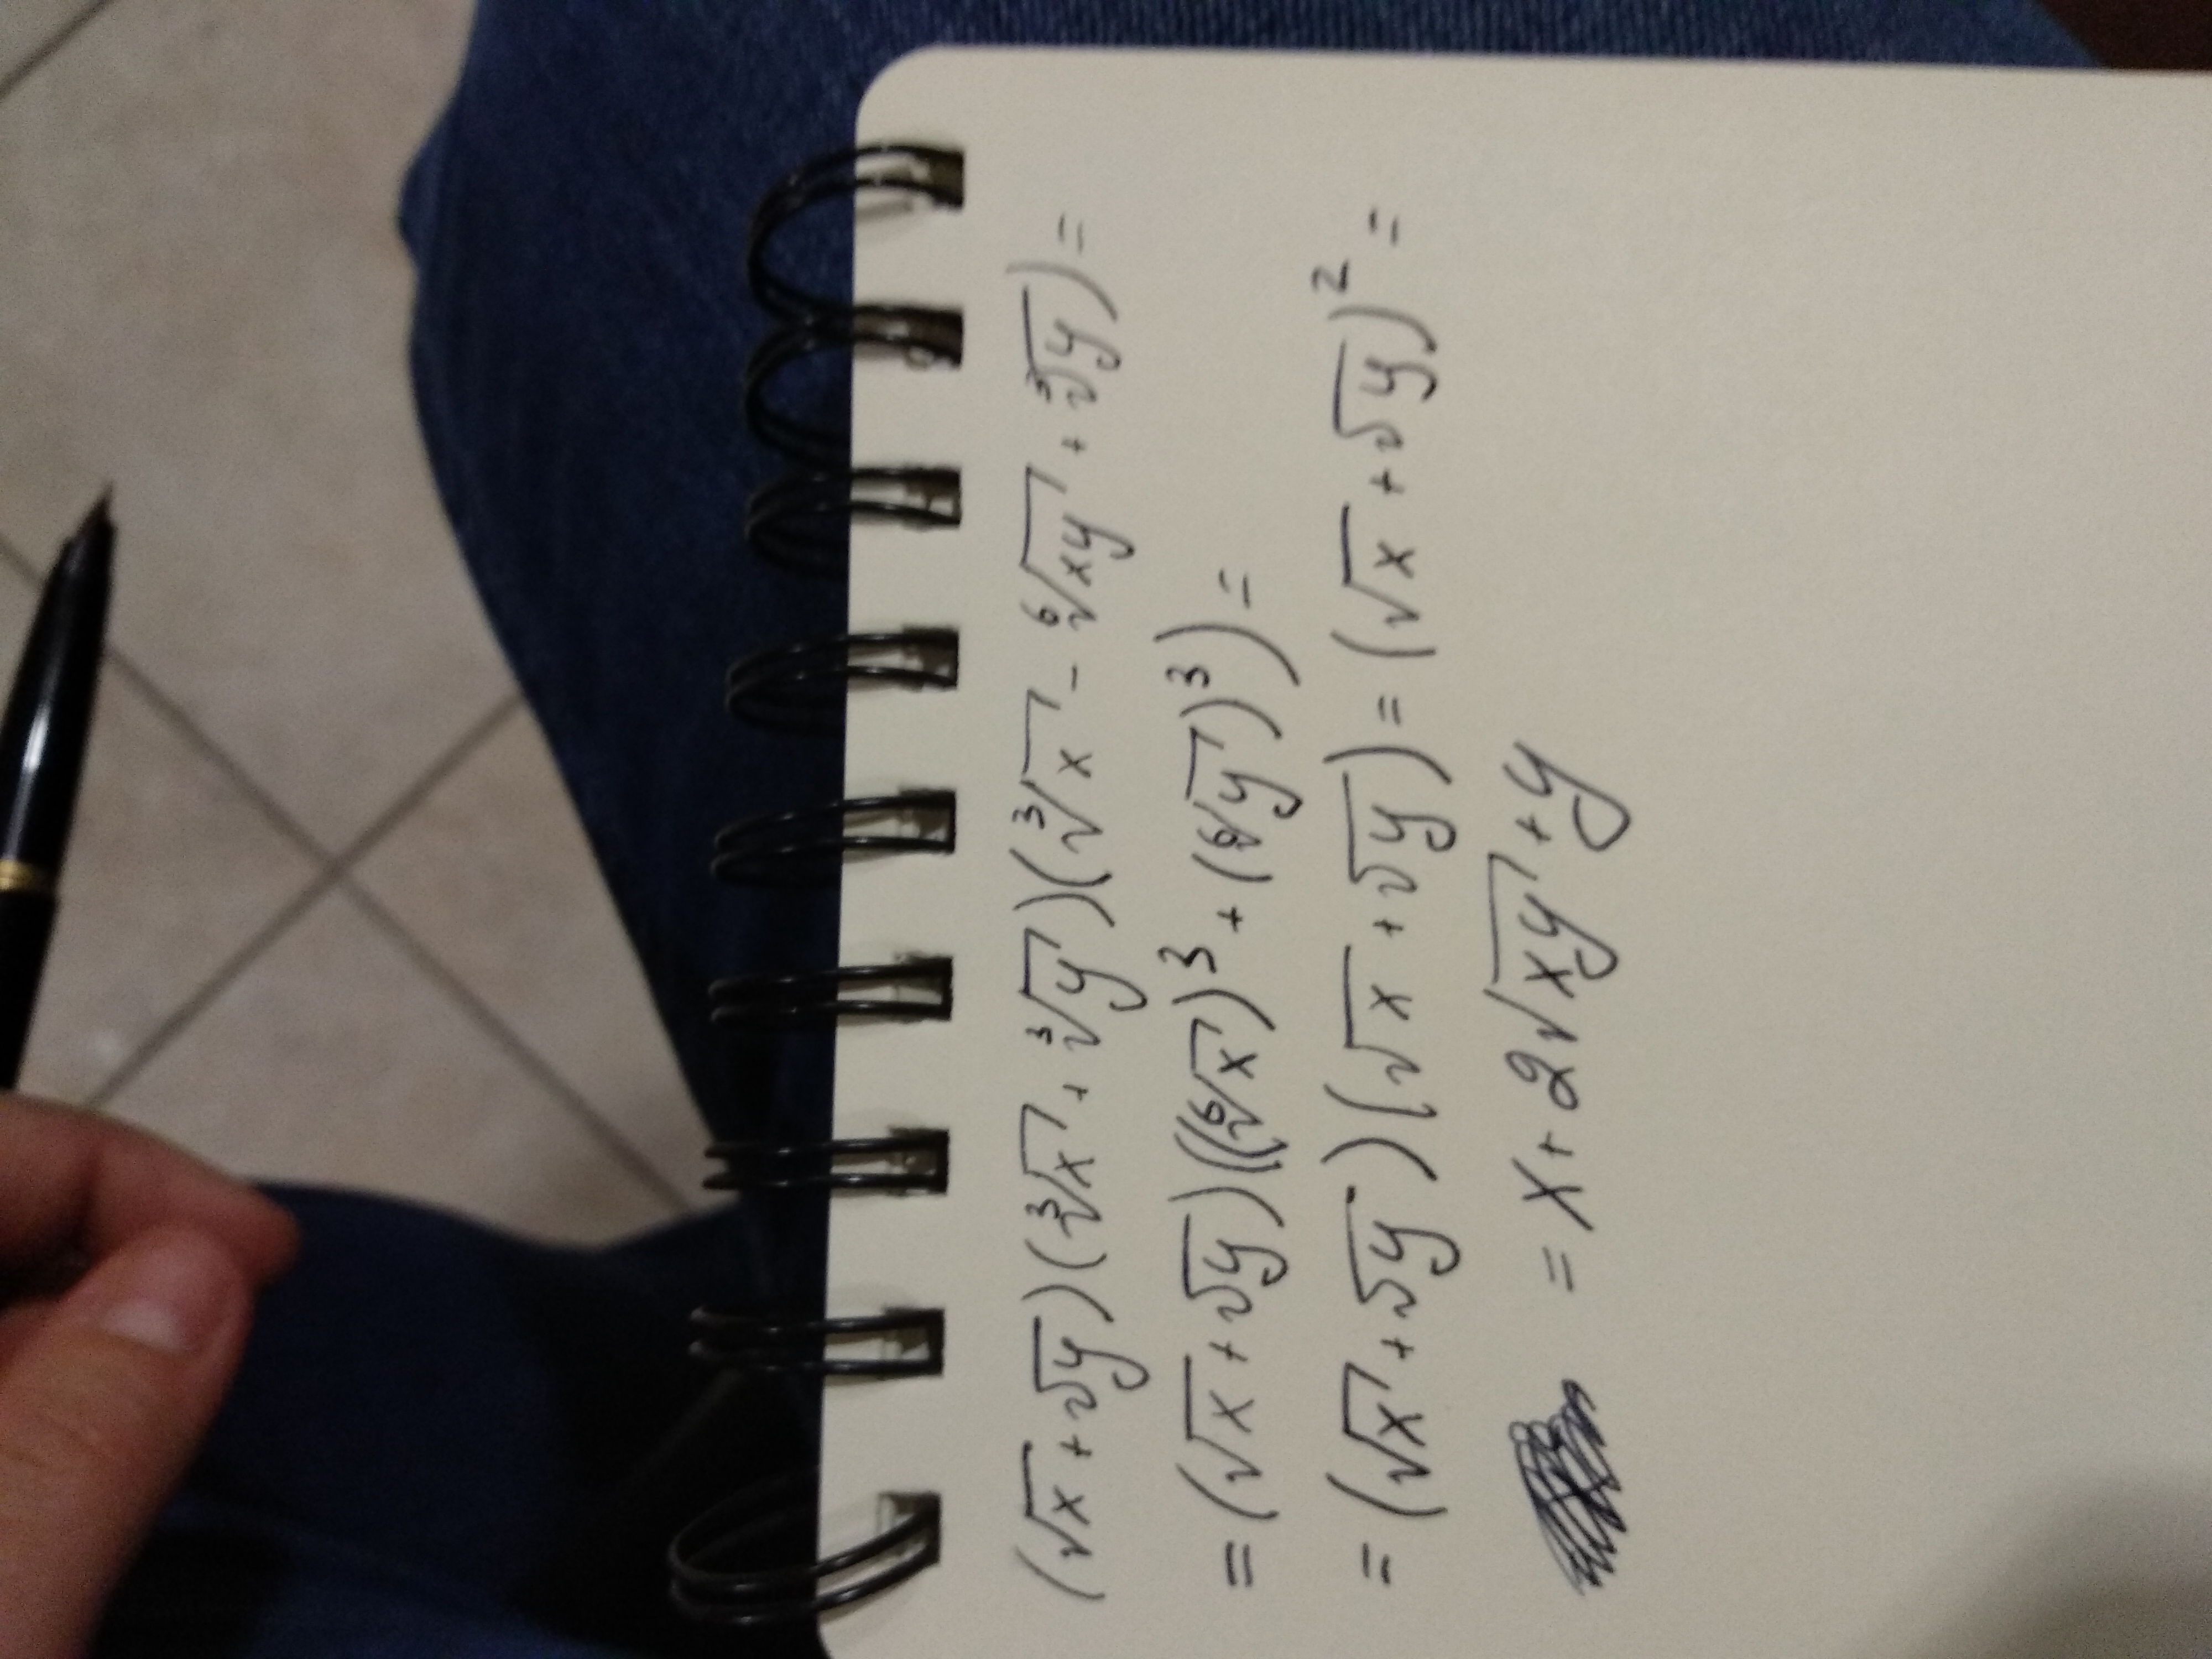 (√x + √y)(∛x + ∛y)(∛x - ⁶√xy + ∛y) =
= (√x + √y)((⁶√x)³ + (⁶√y)³) =
= (√x + √y)(√x + √y) = (√x + √y)² =
= x + 2√xy + y